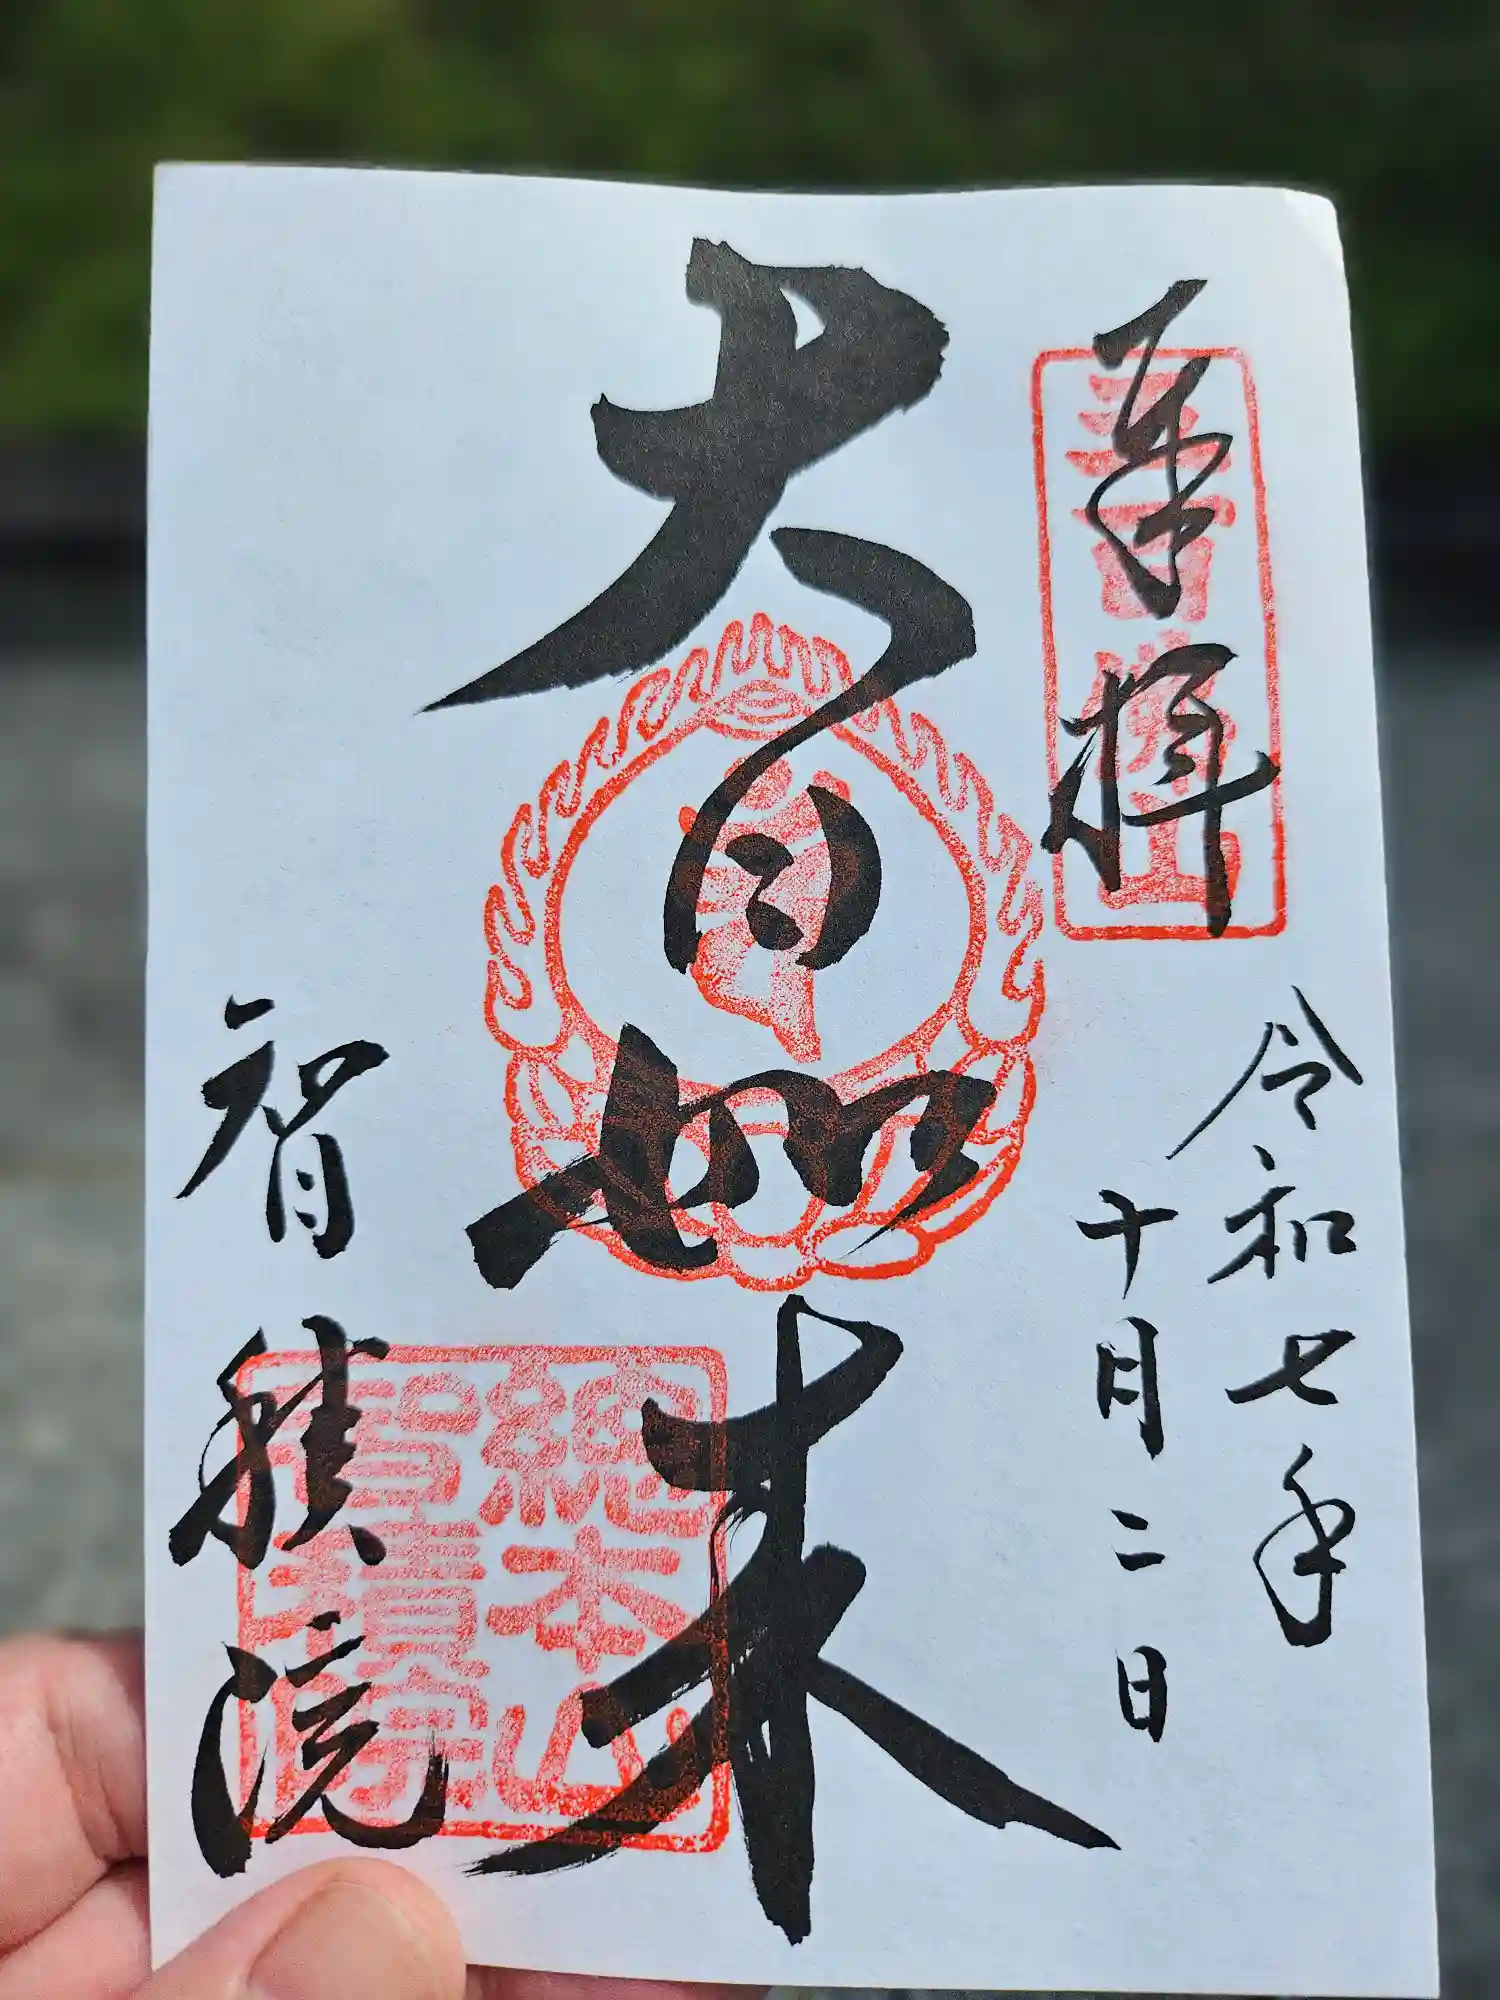 奉拝
五百佛山
令和七年
十月二日
大日如来
智積院
總本山
智積院